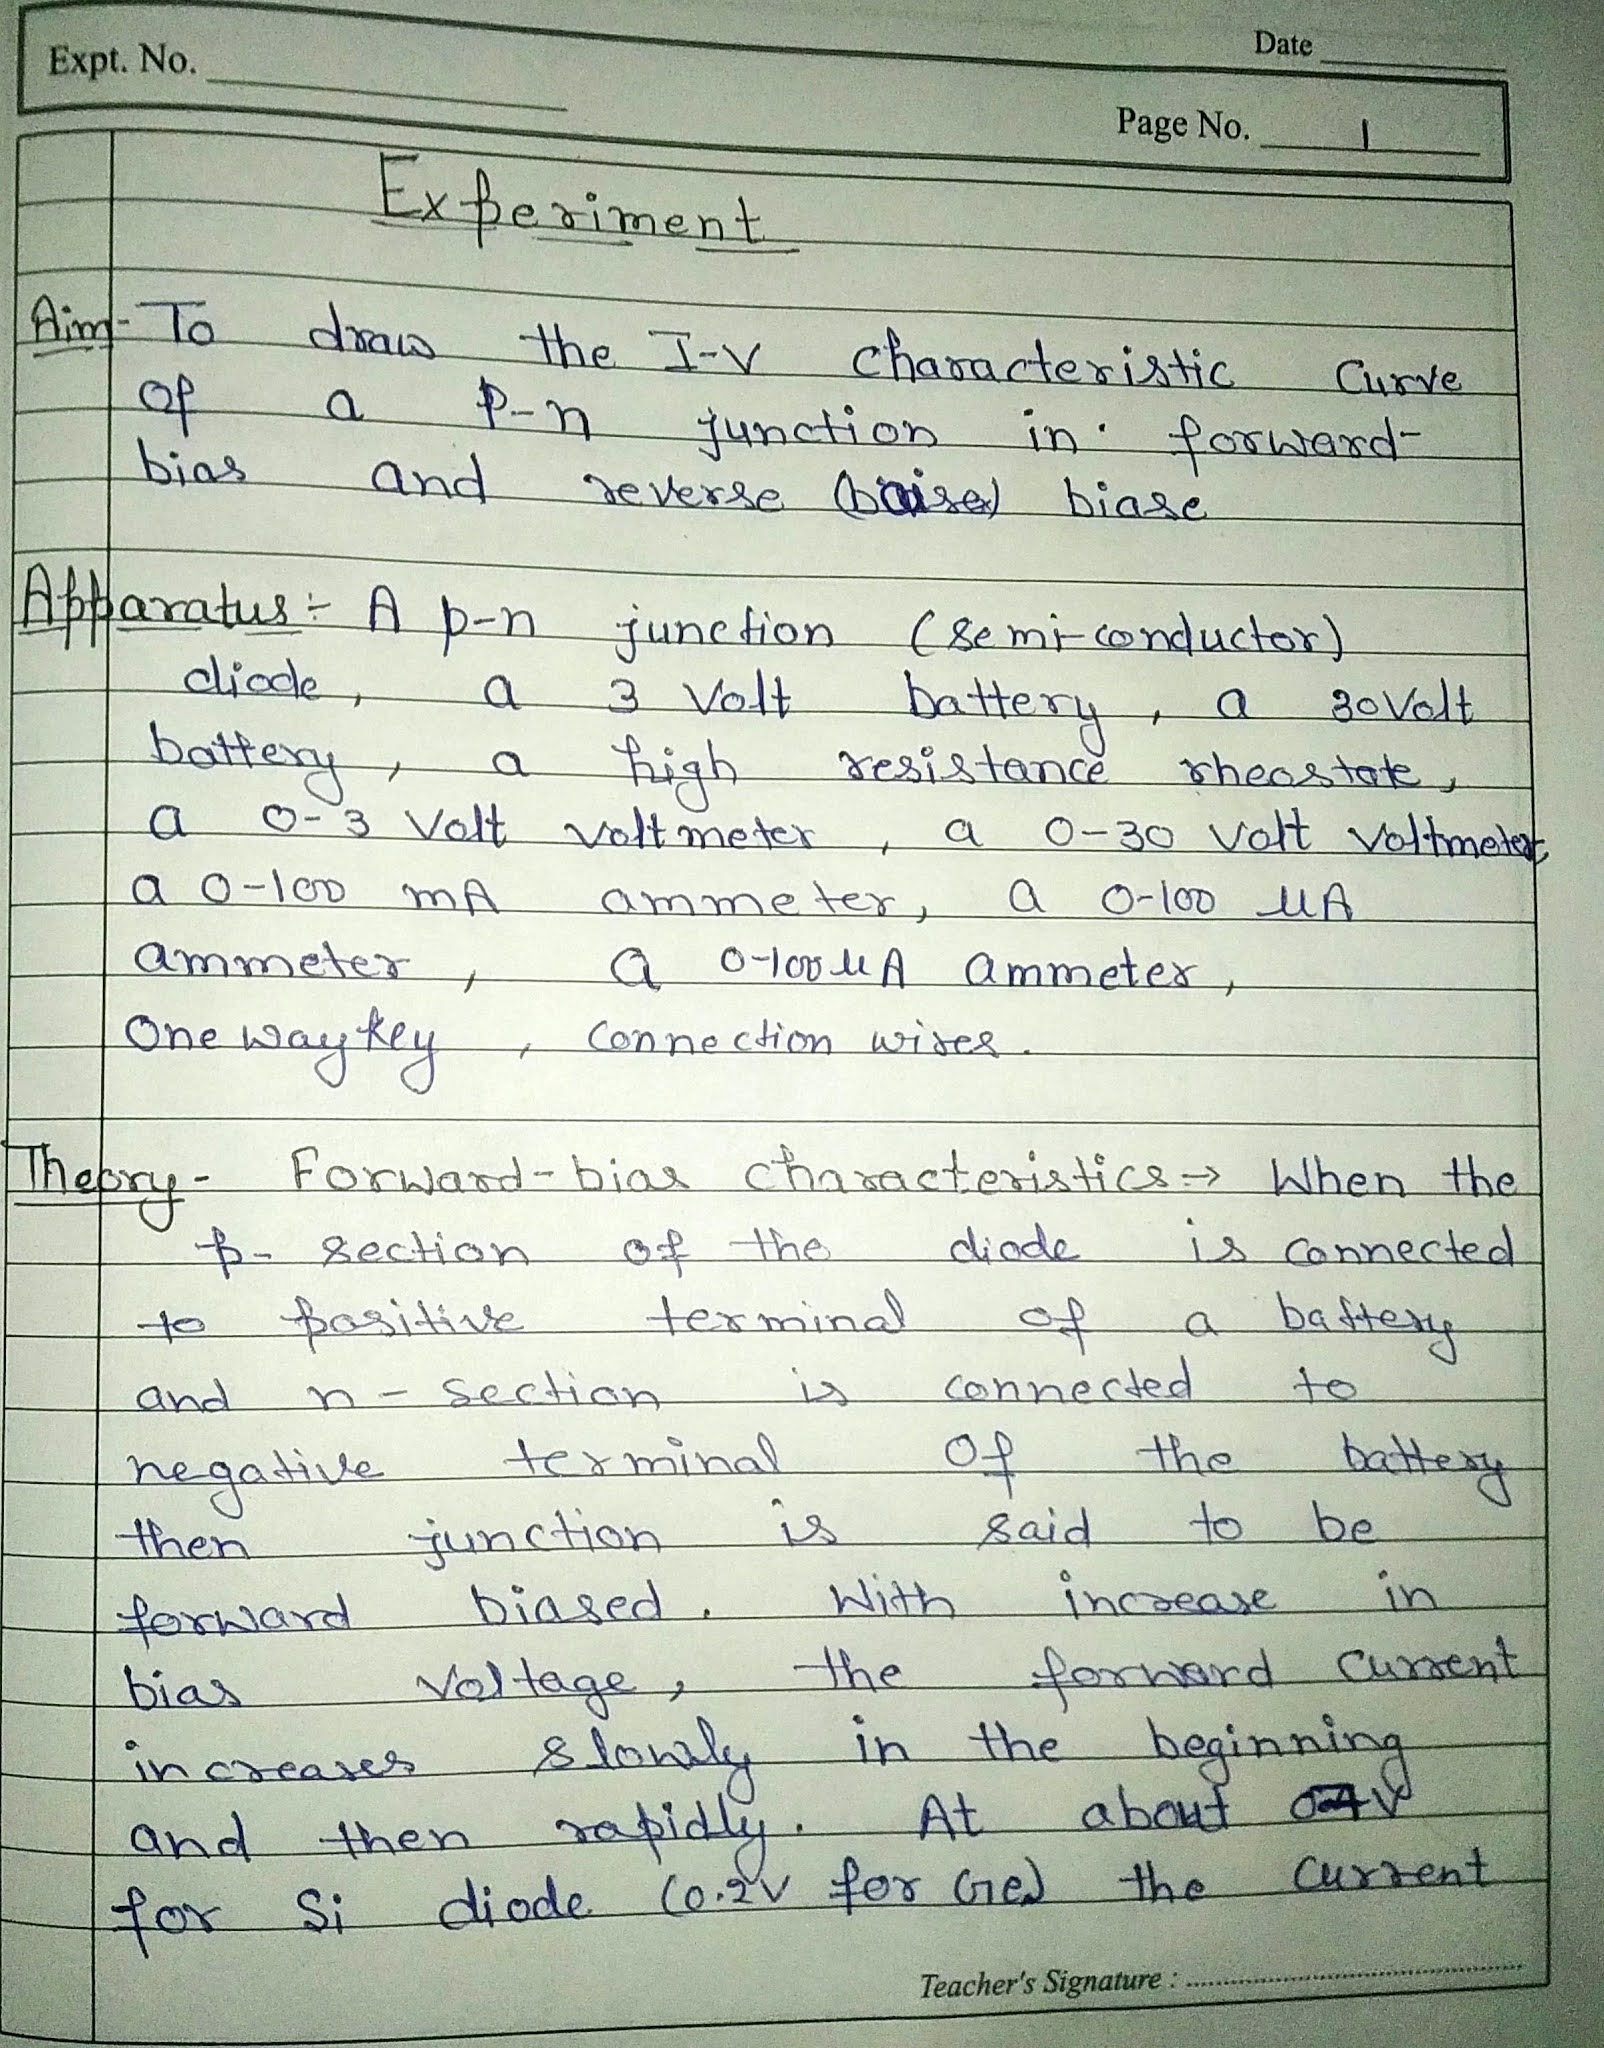 Expt. No.
Date
Page No. 1
Experiment
Aim- To draw the I-V characteristic curve
of a p-n junction in forward-
bias and reverse (baise) biase
Apparatus:- A p-n junction (semi-conductor)
diode, a 3 Volt battery, a 30Volt
battery, a high resistance rheostate,
a 0-3 Volt voltmeter, a 0-30 volt voltmeter,
a 0-100 mA ammeter, a 0-100 μA
ammeter, a 0-100μA ammeter,
One way key, connection wires.
Theory- Forward-bias characteristics:→ When the
p- section of the diode is connected
to positive terminal of a battery
and n- section is connected to
negative terminal of the battery
then junction is said to be
forward biased. With increase in
bias voltage, the forward current
increases slowly in the beginning
and then rapidly. At about
for Si diode (0.2V for Ge) the current
Teacher's Signature :